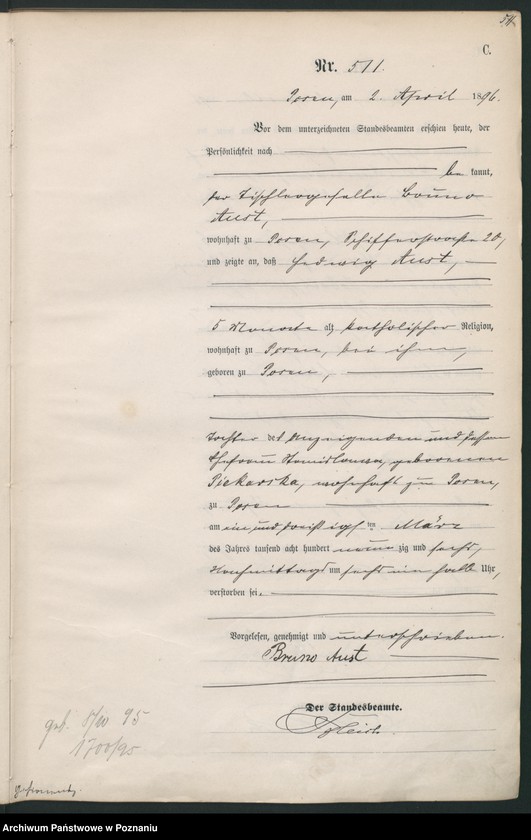 511
C.
Nr. 511.
Posen, am 2. April 1896.
Vor dem unterzeichneten Standesbeamten erschien heute, der
Persönlichkeit nach
be kannt,
der Tischlergeselle Bruno
Aust,
wohnhaft zu Posen, Schifferstraße 20,
und zeigte an, daß Hedwig Aust,
5 Monate alt, katholischer Religion,
wohnhaft zu Posen, bei ihm,
geboren zu Posen,
Tochter des Anzeigenden und dessen
Ehefrau Stanislawa, geborenen
Piekarska, wohnhaft zu Posen,
zu Posen
am ein und dreißigsten März
des Jahres tausend acht hundert neunzig und sechs,
Nachmittags um sechs ein halb Uhr,
verstorben sei.
Vorgelesen, genehmigt und unterschrieben.
Bruno Aust
Der Standesbeamte.
geb. 95
1700/95
Archiwum Państwowe w Poznaniu